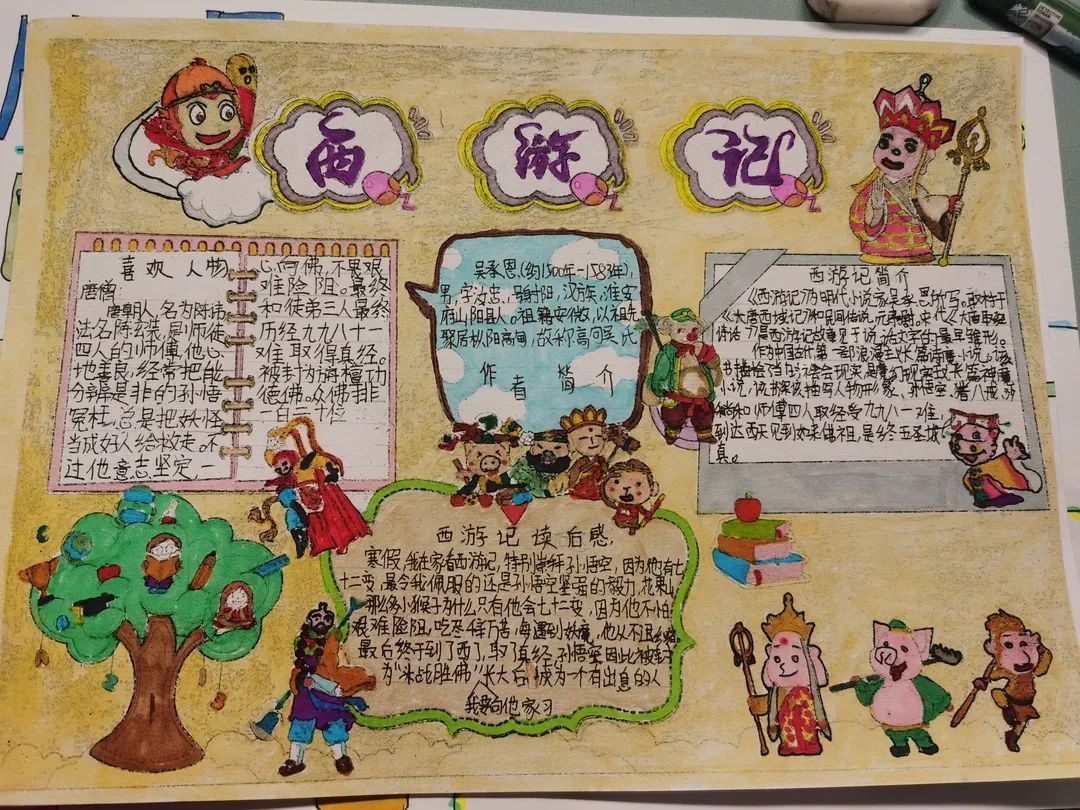 西游记
喜欢人物
唐僧
唐朝人,名为陈祎
法名陈玄奘,是师徒
四人的师傅,他心
地善良,经常把能
分辨是非的孙悟
冤枉,总是把妖怪
当成好人给放走。不
过他意志坚定,一
心向佛,不畏艰
难险阻。最终
和徒弟三人最终
历经九九八十一
难取得真经。
被封为旃檀功
德佛。众佛排
吴承恩,(约1500年-1583年),
男,字汝忠,射阳,汉族,淮安
府山阳县人。祖籍安徽,以祖先
聚居枞阳高甸,故称高甸吴氏
作者简介
西游记简介
《西游记》乃明代小说家吴承恩所写。取材于
《大唐西域记》和民间传说、元杂剧。宋代《大唐取经
诗话》是西游记故事见于说话文字的最早雏形。
作为中国古代第一部浪漫主义长篇
和师傅四人取经受九九八一难,
到达西天见到如来佛祖,最终五圣成
真。
西游记读后感,
寒假,我在家看西游记,特别崇拜孙悟空,因为他有七
十二变,最令我佩服的还是孙悟空坚强的毅力,花果山
那么多小猴子为什么只有他会七十二变,因为他不怕
艰难险阻,吃尽千辛万苦,每遇到妖魔,他从不退缩
最后终于到了西了,取了真经,孙悟空因此被封
为"斗战胜佛"长大后,成为一个有出息的人
我要向他学习